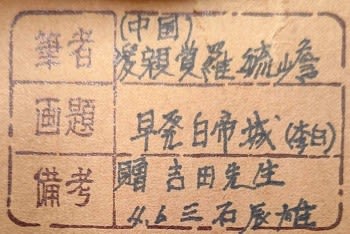 筆者
(中国)
愛親覚羅毓峨
画題
早発白帝城(李白)
備考
贈吉田先生
4.6 三石辰雄